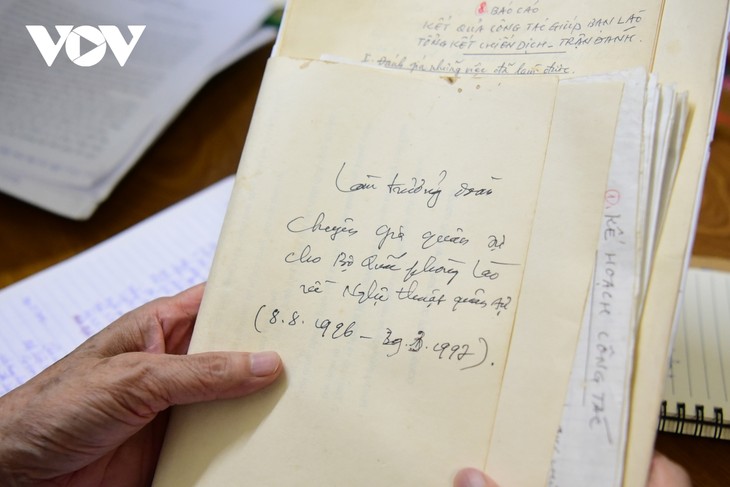 VOV
8 BÁO CÁO
KẾT QUẢ CÔNG TÁC GIÚP BẠN LÀO
TỔNG KẾT CHIẾN DỊCH - TRẬN ĐÁNH.
I. Đánh giá những việc đã làm được.
Làm trưởng đoàn
chuyên gia quân sự
cho Bộ Quốc phòng Lào
về Nghệ thuật quân sự
(8.8.1996 - 1997).
① KẾ HOẠCH CÔNG TÁC